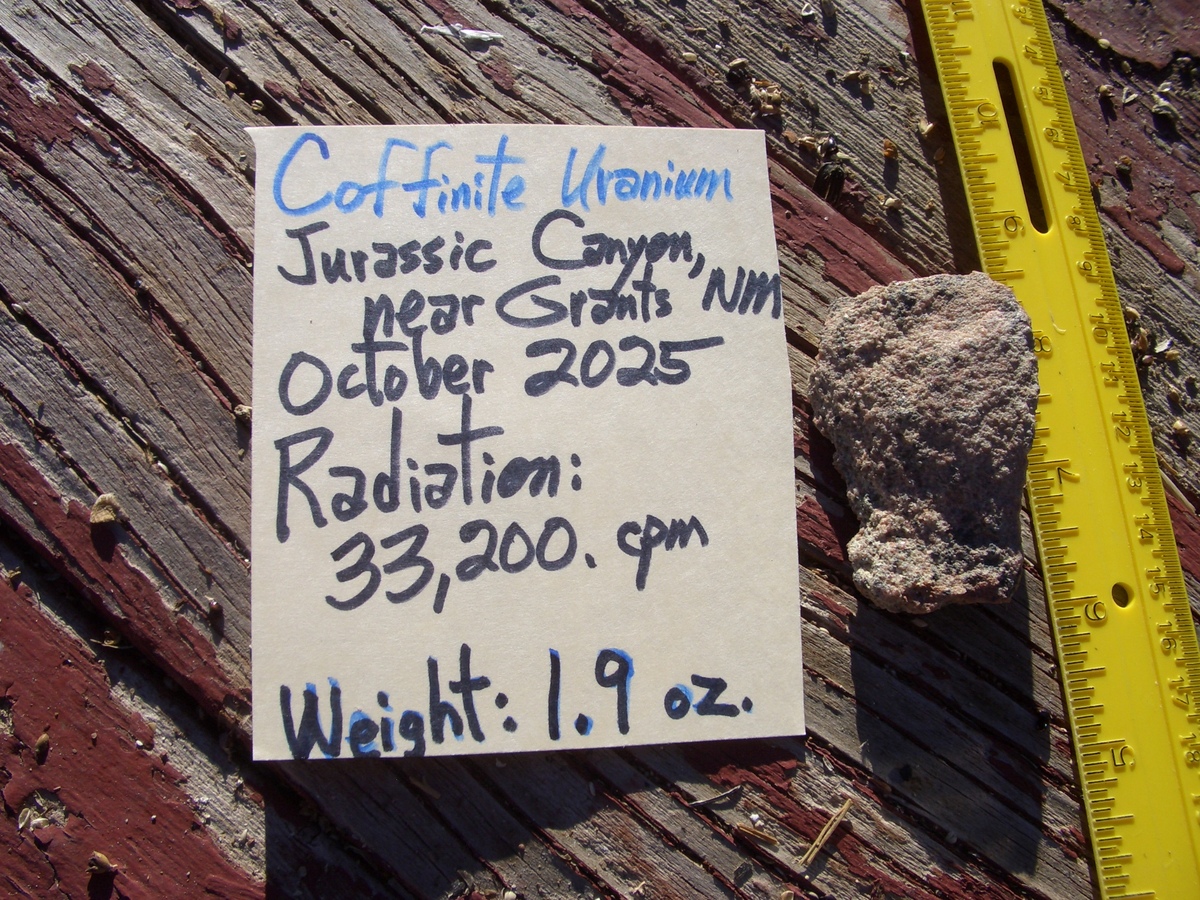 Coffinite Uranium
Jurassic Canyon,
near Grants NM
October 2025
Radiation:
33,200. cpm
Weight: 1.9 oz.
10
9
8
7
6
5
10
11
12
13
14
15
16
17
18